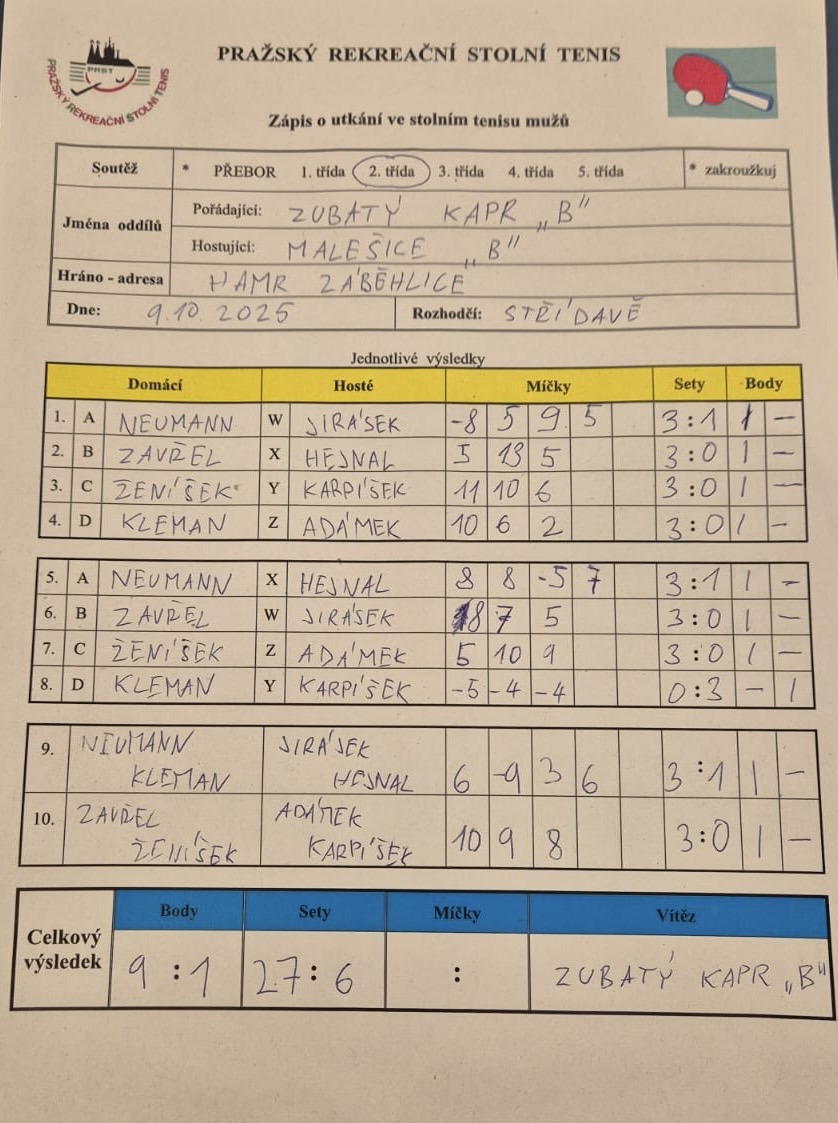 PRAŽSKÝ REKREAČNÍ STOLNÍ TENIS
PRST
PRAŽSKÝ REKREAČNÍ STOLNÍ TENIS
Zápis o utkání ve stolním tenisu mužů
Soutěž * PŘEBOR 1. třída 2. třída 3. třída 4. třída 5. třída * zakroužkuj
Jména oddílů
Pořádající: ZUBATÝ KAPR „B"
Hostující: MALEŠICE „B"
Hráno - adresa HAMR ZÁBĚHLICE
Dne: 9.10.2025 Rozhodčí: STŘÍDAVĚ
Jednotlivé výsledky
Domácí Hosté Míčky Sety Body
1. A NEUMANN W JIRÁSEK -8 5 9 5 3:1 1 -
2. B ZAVŘEL X HEJNAL 5 13 5 3:0 1 -
3. C ŽENÍŠEK Y KARPÍŠEK 11 10 6 3:0 1 -
4. D KLEMAN Z ADÁMEK 10 6 2 3:0 1 -
5. A NEUMANN X HEJNAL 8 8 -5 7 3:1 1 -
6. B ZAVŘEL W JIRÁSEK 8 7 5 3:0 1 -
7. C ŽENÍŠEK Z ADÁMEK 5 10 9 3:0 1 -
8. D KLEMAN Y KARPÍŠEK -5 -4 -4 0:3 - 1
9. NEUMANN JIRÁSEK
KLEMAN HEJNAL 6 -9 3 6 3:1 1 -
10. ZAVŘEL ADÁMEK
ŽENÍŠEK KARPÍŠEK 10 9 8 3:0 1 -
Celkový výsledek
Body Sety Míčky Vítěz
9:1 27:6 : ZUBATÝ KAPR „B"